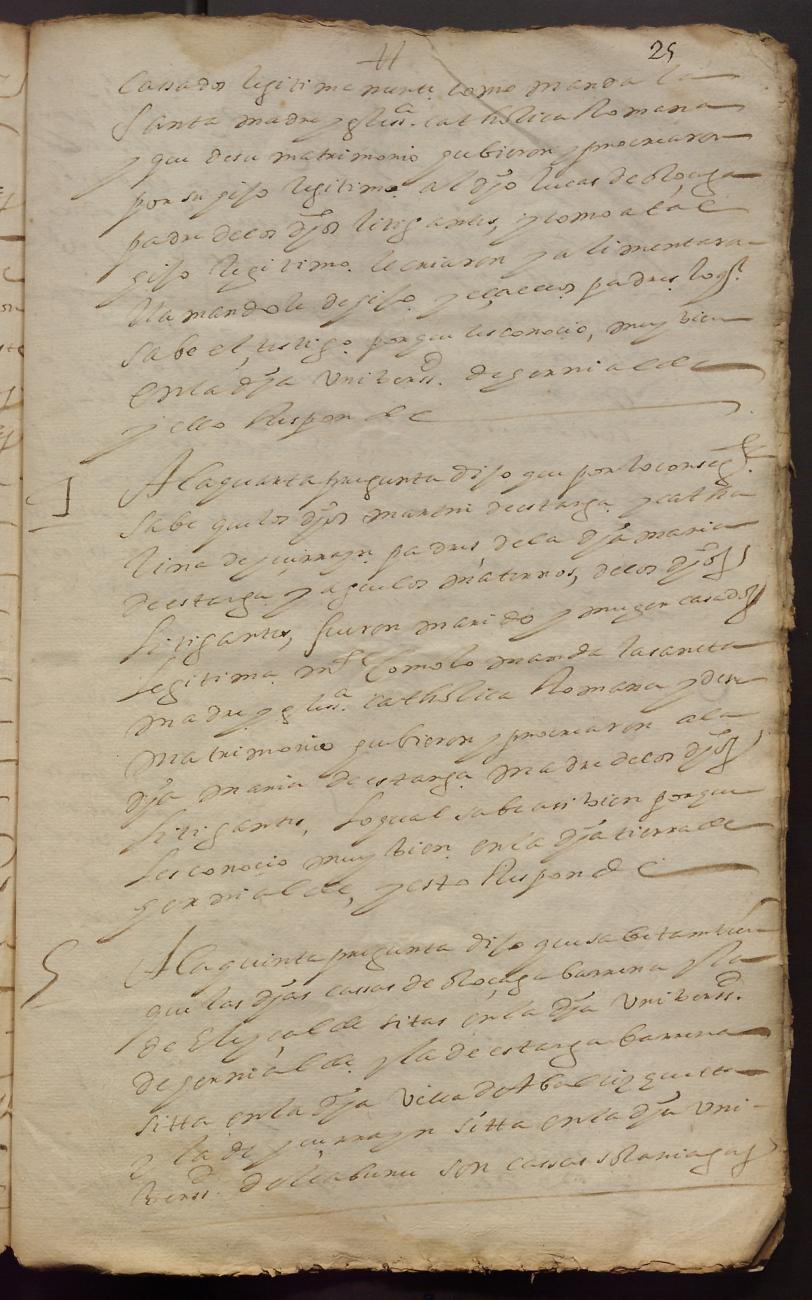 25
Cassados legitimamente como manda la
Santa madre yglessia catholica Romana
y que de su matrimonio hubieron y procrearon
por su hijo legitimo al dho lucas de
padre de los dhos litigantes, y como a tal
hijo legitimo le criaron y alimentaron
llamandole de hijo y el a ellos padres lo ql
sabe el testigo porque les conocio, muy bien
en la dha Universsd de gernialde
y ello Responde
A la quarta pregunta dijo que por lo conseg
sabe que los dhos martin de estanga y catha
lina de padres de la dha maria
de estanga y aguelos maternos, de los dhos
litigantes, fueron marido y muger casados
legitima mte Como lo manda la sancta
madre yglessia catholica Romana y de su
matrimonio hubieron y procrearon a la
dha maria de estanga madre de los dhos
litigantes, Lo qual sabe asi bien porque
les conocio muy bien en la dha tierra de
gernialde, y esto Responde
5 A la quinta pregunta dijo que sabe tambien
que las dhas cassas de barrena y la
de sitas en la dha Universsd
de gernialde y la de estanga barrena
sitta en la dha Villa de
y la de sitta en la dha Uni-
berssd de son cassas solariegas